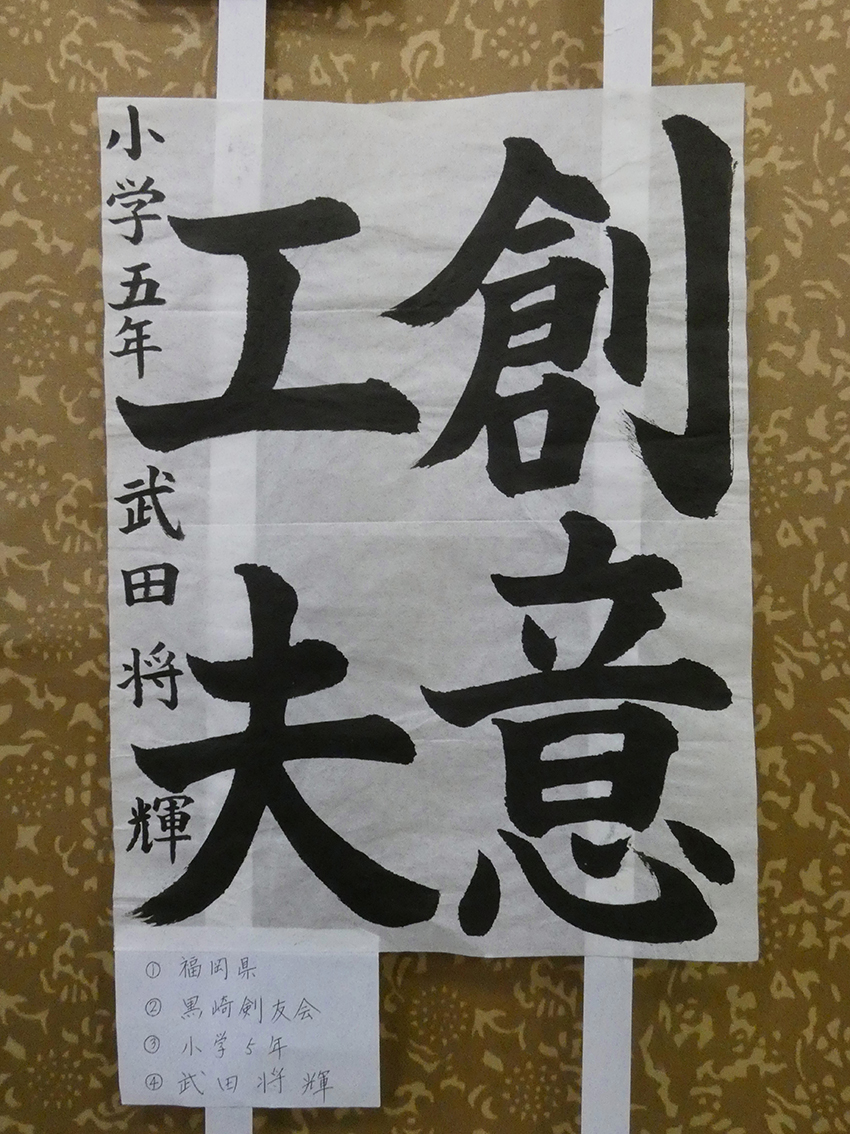 創意
工夫
小学五年 武田将輝
① 福岡県
② 黒崎剣友会
③ 小学5年
④ 武田将輝